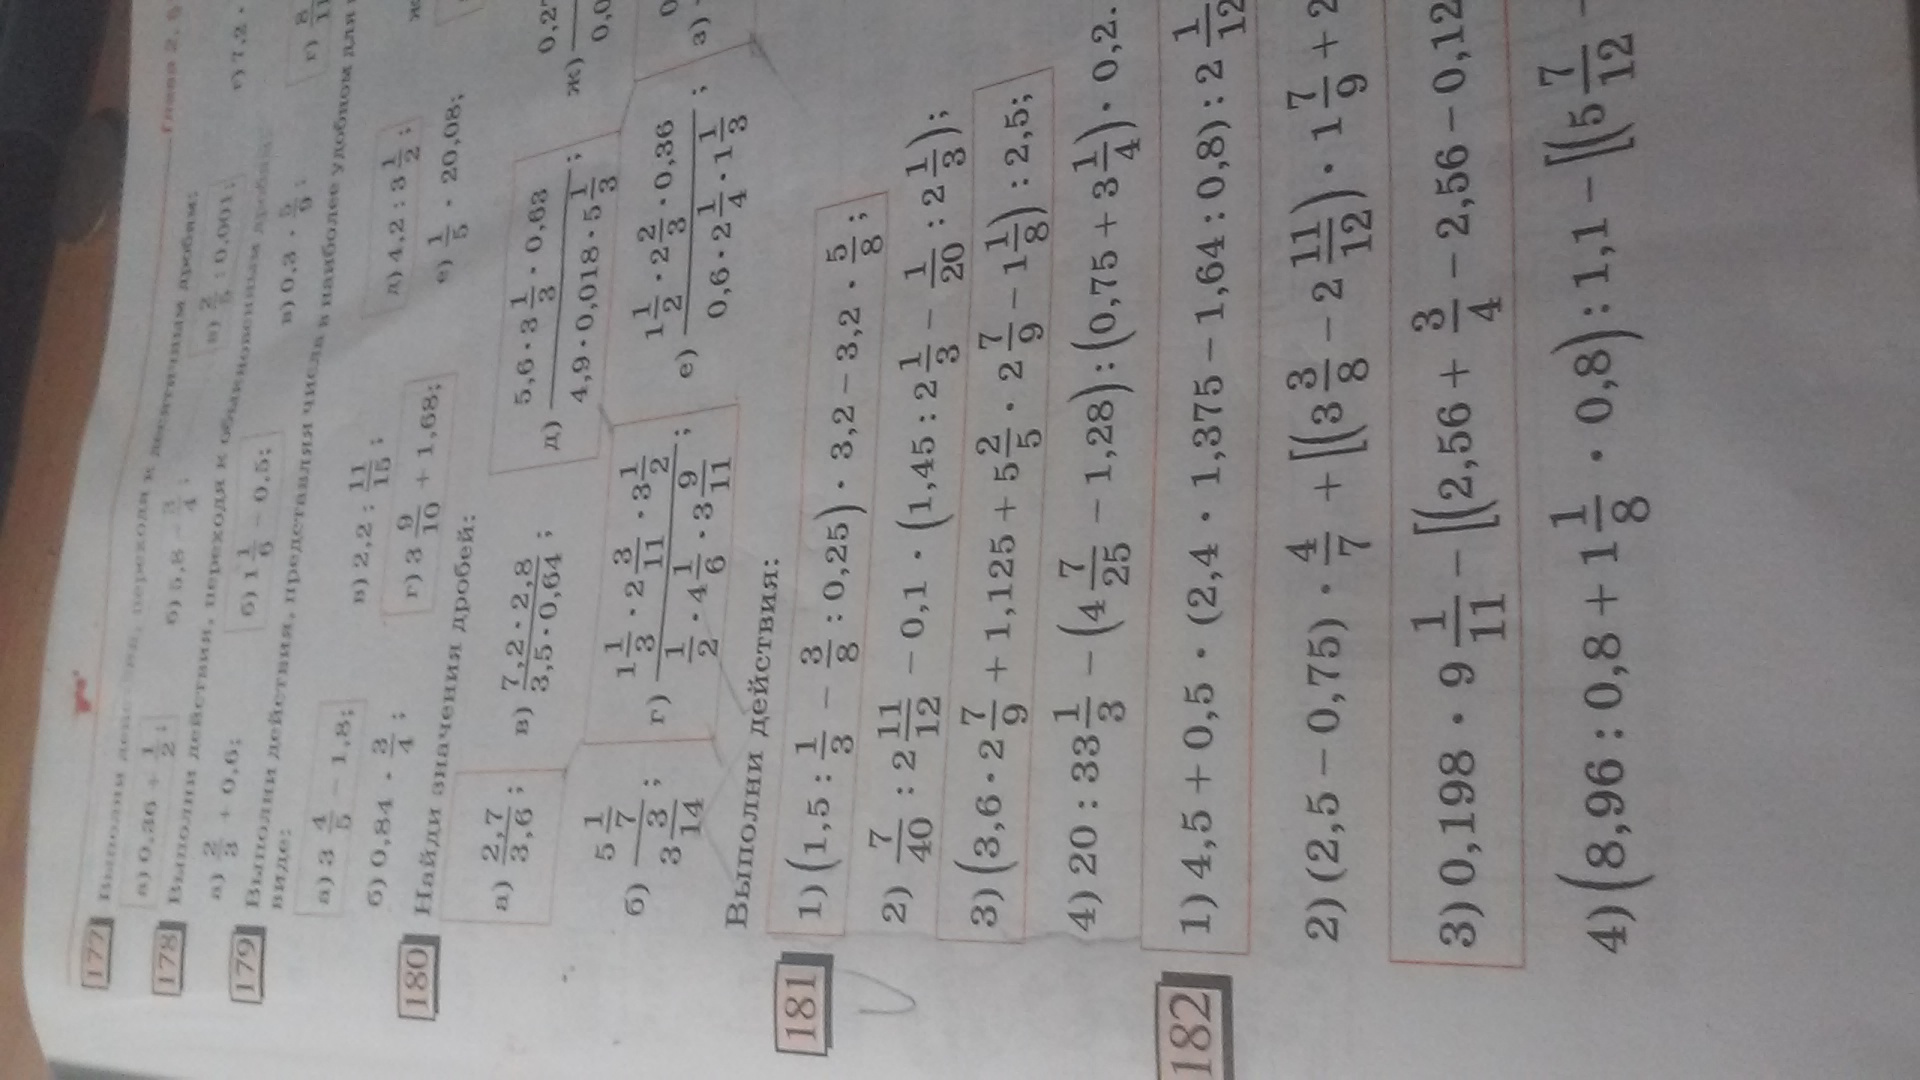 Глава 2, §
177 Выполни действия, переходя к десятичным дробям:
а) 0,36 + 1/2; б) 5,8 − 3/4; в) 2/5 : 0,001; г) 7,2 ·
178 Выполни действия, переходя к обыкновенным дробям:
а) 2/3 + 0,6; б) 1 1/6 − 0,5; в) 0,3 · 5/9; г) 8/11
179 Выполни действия, представляя числа в наиболее удобном для
виде:
а) 3 4/5 − 1,8; в) 2,2 : 11/15; д) 4,2 : 3 1/2; ж
б) 0,84 · 3/4; г) 3 9/10 + 1,68; е) 1/5 · 20,08;
180 Найди значения дробей:
а) 2,7/3,6; в) 7,2 · 2,8/3,5 · 0,64; д) 5,6 · 3 1/3 · 0,63/4,9 · 0,018 · 5 1/3; ж) 0,27/0,0
б) 5 1/7/3 3/14; г) 1 1/3 · 2 3/11 · 3 1/2/1/2 · 4 1/6 · 3 9/11; е) 1 1/2 · 2 2/3 · 0,36/0,6 · 2 1/4 · 1 1/3; з) 0
Выполни действия:
181 1) (1,5 : 1/3 − 3/8 : 0,25) · 3,2 − 3,2 · 5/8;
2) 7/40 : 2 11/12 − 0,1 · (1,45 : 2 1/3 − 1/20 : 2 1/3);
3) (3,6 · 2 7/9 + 1,125 + 5 2/5 · 2 7/9 − 1 1/8) : 2,5;
4) 20 : 33 1/3 − (4 7/25 − 1,28) : (0,75 + 3 1/4) · 0,2.
182 1) 4,5 + 0,5 · (2,4 · 1,375 − 1,64 : 0,8) : 2 1/12
2) (2,5 − 0,75) · 4/7 + [(3 3/8 − 2 11/12) · 1 7/9 + 2
3) 0,198 · 9 1/11 − [(2,56 + 3/4 − 2,56 − 0,12
4) (8,96 : 0,8 + 1 1/8 · 0,8) : 1,1 − [(5 7/12 −